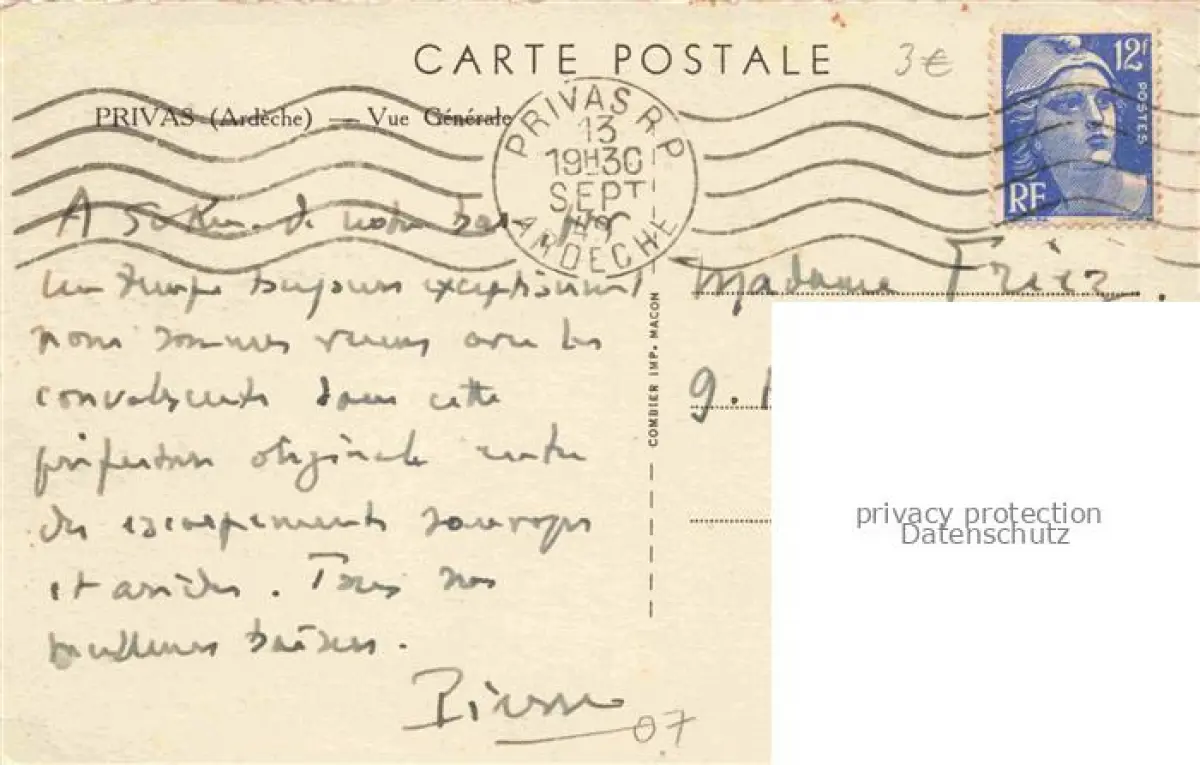 CARTE POSTALE
3€
12F
POSTES
RF
PRIVAS (Ardèche) — Vue Générale
PRIVAS R.P
13
19H30
SEPT
ARDECHE
A 50 Km. de notre
un temps toujours exceptionnel
nous sommes venus avec les
convalescents dans cette
préfecture originale entre
des escarpements sauvages
et arides. Tous nos
meilleurs baisers.
Pierre
07
COMBIER IMP. MACON
Madame
9.
privacy protection
Datenschutz